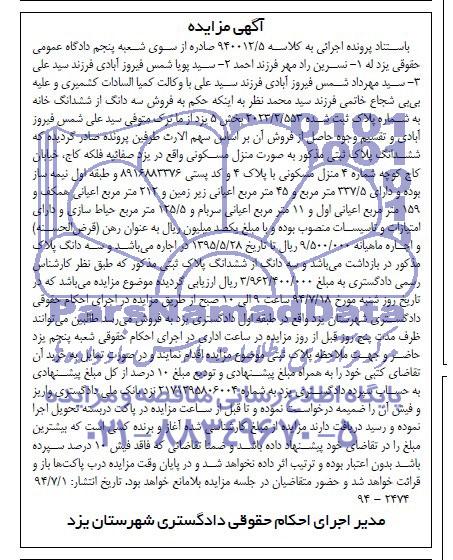 آگهی مزایده
باستناد پرونده اجرائی به کلاسه ۹۴۰۰۱۲/۵ صادره از سوی شعبه پنجم دادگاه عمومی
حقوقی یزد له ۱- نسرین راد مهر فرزند احمد ۲- سید پویا شمس فیروز آبادی فرزند سید علی
۳- سید مهرداد شمس فیروز آبادی فرزند سید علی با وکالت کمیا السادات کشمیری و علیه
بی‌بی شجاع خاتمی فرزند سید محمد نظر به اینکه حکم به فروش سه دانگ از ششدانگ خانه
به شماره پلاک ثبت شده ۲۰۲۳/۲/۵۵۳ بخش ۵ یزد از ماترک متوفی سید علی شمس فیروز
آبادی و تقسیم وجوه حاصل از فروش آن بر اساس سهم الارث طرفین پرونده صادر گردیده که
ششدانگ پلاک ثبتی مذکور به صورت منزل مسکونی واقع در یزد صفائیه فلکه کاج، خیابان
کاج کوچه شماره ۴ منزل مسکونی با پلاک ۴ و کد پستی ۸۹۱۶۸۸۳۳۷۶ و طبقه اول نیمه ساز
دارای ۳۳۷/۵ متر مربع و ۴۵ متر مربع اعیانی زیر زمین و ۲۱۲ متر مربع اعیانی همکف و
۱۵۹ متر مربع اعیانی اول و ۱۱ متر مربع اعیانی سربام و ۱۲۵/۵ متر مربع حیاط سازی و دارای
امتیازات و تاسیسات منصوب بوده و با مبلغ یکصد میلیون ریال به عنوان رهن (قرض‌الحسنه)
و اجاره ماهیانه ۹/۵۰۰/۰۰۰ ریال تا تاریخ ۱۳۹۵/۵/۲۸ در اجاره می‌باشد و سه دانگ پلاک
مذکور در بازداشت می‌باشد و سه دانگ از ششدانگ پلاک ثبتی مذکور که طبق نظر کارشناس
رسمی دادگستری به مبلغ ۳/۹۶۲/۴۰۰/۰۰۰ ریال ارزیابی گردیده موضوع مزایده می‌باشد که در
تاریخ روز شنبه مورخ ۹۴/۷/۱۸ ساعت ۹ الی ۱۰ صبح از طریق مزایده در اجرای احکام حقوقی
دادگستری شهرستان یزد واقع در طبقه اول دادگستری یزد به فروش می‌رسد طالبین می‌توانند
ظرف مدت پنج روز قبل از روز مزایده در ساعت اداری در اجرای احکام حقوقی شعبه پنجم یزد
حاضر و جهت ملاحظه پلاک ثبتی موضوع مزایده اقدام نمایند و در صورت تمایل به خرید آن
تقاضای کتبی خود را به همراه مبلغ پیشنهادی و تودیع مبلغ ۱۰ درصد از کل مبلغ پیشنهادی
به حساب سپرده دادگستری یزد به شماره ۲۱۷۱۲۹۵۸۰۶۰۰۴ نزد بانک ملی دادگستری واریز
و فیش آن را ضمیمه درخواست نموده و تا قبل از ساعت مزایده در پاکت دربسته تحویل اجرا
نموده و رسید دریافت دارند مزایده از مبلغ کارشناسی شده آغاز و برنده کسی است که بیشترین
مبلغ را در تقاضای خود پیشنهاد داده باشد و ضمنا تقاضائی که فاقد فیش ۱۰ درصد سپرده
باشد بدون اعتبار بوده و ترتیب اثر داده نخواهد شد و در پایان وقت مزایده درب پاکت‌ها باز و
قرائت خواهد شد و حضور متقاضیان در جلسه مزایده بلامانع خواهد بود. تاریخ انتشار: ۹۴/۷/۱
۲۴۷۴ - ۹۴
مدیر اجرای احکام حقوقی دادگستری شهرستان یزد